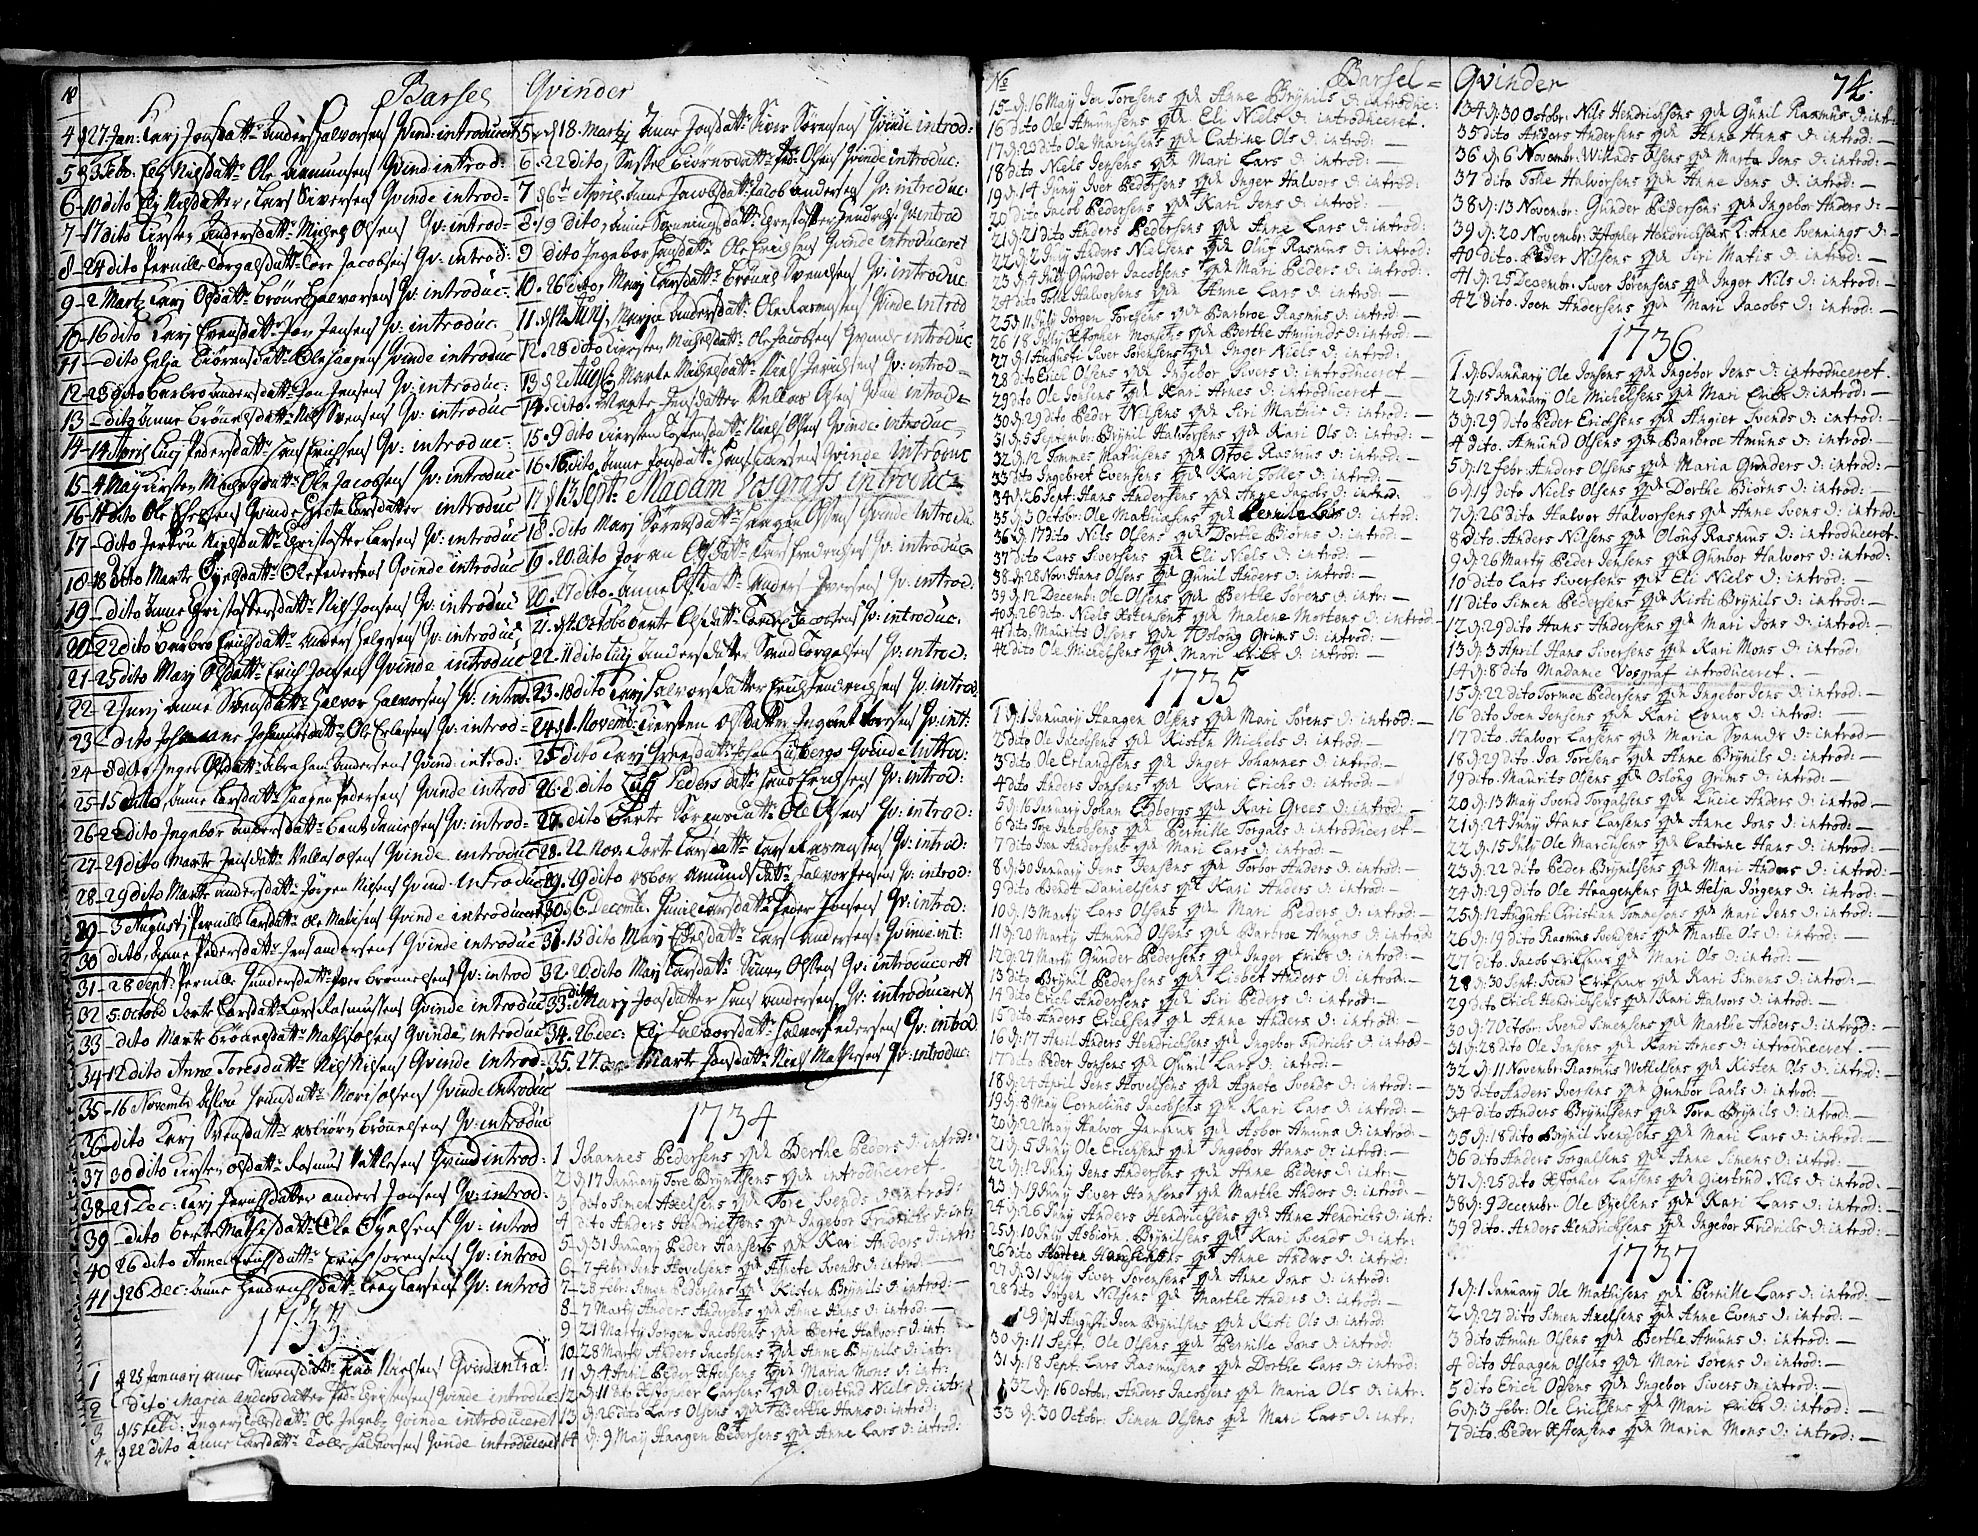 Barsel Qvinder
4 d 27 Jan: Karj Jonsdattr Anders Halvorsens Qvind: introduceret
5 d 3 Febr: Elj Nielsdattr Ole Amunsens Qvinde introd:
6 10 dito Elj Nielsdatter, Lars Siversens Qvinde introd
7 17 dito Kirsten Andersdattr Michel Olsens Qv: introd
8 24 dito Pernille Torgalsdattr Tore Jacobsens Qv: introd:
9 2 Martj Karj Olsdattr Brönel Halvorsens Qv: introduc:
10 16 dito Karj Evensdattr Jon Jensens Qv: introduc:
11 dito Helja Biörensdattr Ole Haagens Qvinde introduc
12 23 dito Barbro Andersdattr Jon Jensens Qv: introduc:
13 dito Anne Brönelsdattr Niels Svensens Qv: introduc
14 14 April Lucj Pedersdattr Hans Erichsens Qv: introduc
15 4 Maj Kirsten Michelsdattr Ole Jacobsens Qv: introduc
16 dito Ole Qvinde Grete Larsdatter introduc
17 dito Jertru Nielsdattr Christoffer Larsens Qv: introduc
18 18 dito Marte Eyelsdattr Ole Pedersens Qvinde introduc
19 dito Anne Christoffersdattr Niels Jonsens Qv: introduc
20 22 dito Barbro Erichsdattr Anders Helgesens Qv: introduc
21 25 dito Marj Olsdattr Erich Jonsens Qvinde introduc
22 2 Junj Anne Svensdattr Halvor Halvorsens Qv: introd
23 dito Johanne Johannesdattr Ole Erlansens Qv: introd
24 8 dito Inger Olsdattr Abraham Andersens Qvind: introd:
25 15 dito, Anne Larsdattr Haagen Pedersens Qvinde introd
26 22 dito Ingebor Andersdattr Bent Danielsens Qv: introd
27 29 dito Marte Jensdattr Vellas Olsens Qvinde introduc
28 29 dito Marte Andersdattr Jörgen Nielsens Qvind: introduc
29 3 Augustj Pernille Larsdattr Ole Matisens Qvinde introduceret
30 dito Anne Pedersdattr Jens Andersens Qvinde introduc
31 28 Sept: Pernille Gundersdattr Iver Brönnelsens Qv: introd
32 5 Octob Dorte Larsdattr Lars Rasmussens Qvinde introduc
33 dito Marte Brönelsdattr Mathis Olsens Qvinde, introduc
34 12 dito Anne Toresdattr Niels Nilsens Qvinde introd
35 16 Novembr Oslou Morits Olsens Qvinde introduc
36 dito Karj Svensdattr Asbiörn Brönnelsens Qv: introduc
37 30 dito Kirsten Olsdattr Rasmus Vetlesens Qvind introd:
38 21 Dec: Karj Jensdatter Anders Jonsens Qv: introd:
39 dito Berte Mathisdattr Ole Eyelsens Qv: introd
40 26 dito Anne Erichsdattr Erich Sörensens Qv: introd
41 d 26 Dec: Anne Hendrichsdattr Larsens Qv: introd
1733
1 d 25 Januarj Anne Simensdattr Nielsens Qvind intro:
2 dito Maria Andersdatter Christensens Qvinde introduc
3 d 15 Febr: Ingerj Larsdattr Ol Ingels Qvinde introduceret
4 d 22 dito Anne Larsdattr Tolle Halvorsens Qvinde introduceret
5 d 18 Martj Anne Jonsdattr Siver Sörensens Qvinde introd:
6 22 dito, Biörnsdattr Olsens Qvinde introduc:
7 d 6 April: Anne Jacobsdattr Jacob Andersens Qv: introduc:
8 19 dito, Anne Svenningsdattr Christoffer Hendrichs: Qv: introd
9 dito Ingebor Jensdattr Ole Erichsens Qvinde introduceret
10 26 dito, Marj Larsdattr Brönel Svendsens Qv: introduc
11 d 14 Junj, Marja Andersdattr Ole Rasmusens Qvinde introd
12 28 dito Kiersten Michelsdattr Ole Jacobsens Qvinde introduc
13 d 2 Aug: Marte Michelsdattr Niels Jerichsens Qv: introd
14 dito Marte Jensdatter Vellas Olsens Qvinde introd
15 9 dito Kiersten Niels Olsens Qvinde introduc
16 16 dito Anne Jonsdattr Hans Larsens Qvinde introduc
17 d 13 Sept: Madam Vosgrafs introduc:
18 dito Marj Sörensdattr Haagen Olsens Qvinde introduc
19 20 dito Joran Olsdattr Lars Frederichsens Qv: introduc
20 27 dito Anne Olsdattr Anders Iversens Qv: introd:
21 d 4 Octob Berte Olsdattr Tore Jacobsens Qv: introduc:
22 11 dito Lucj Andersdatter Svend Torgelsens Qv: introd:
23 18 dito Karj Halvorsdatter Erich Hendrichsens Qv: introd
24 d 1 Novemb: Kiersten Olsdatter Ingebret Evensens Qv: int:
25 dito Karj Gresdattr Johan Lisbergs Qvinde introd:
26 8 dito Lucj Pedersdattr Hans Erichsens Qv: introd:
27 dito Berte Sörensdattr Ole Olsens Qv: introd:
28 22 Nov. Dorte Larsdattr Lars Rasmusens Qv: introd:
29 29 dito Asbor Amundsdattr Halvor Jensens Qv: introd:
30 d 6 Decemb. Gunil Larsdattr Peder Jonsens Qv: introd:
31 13 dito Marj Eyelsdattr Lars Andersens Qvinde int:
32 20 dito Marj Larsdattr Simen Olsens Qv: introduceret
33 dito Marj Jonsdatter Hans Andersens Qv: introduceret
34 26 dec: Elj Halvorsdattr Halvor Pedersens Qv: introd
35 27 Dec Marte Jonsdattr Niels Mathisens Qv: introduc:
1734
1 Johannes Pedersens qde Berthe Peders d: introd:
2 d: 17 January Tore Brynilsens qde introduceret
3 dito Simen Axelsens qde Tore Svends d: introd:
4 dito Anders Hendrichsens qde Ingebor Fridrichs d: intr:
5 d 31 January Peder Hansens qde Kari Anders d: intr:
6 7 Febr: Jens Hovelsens qde Agnete Svends d: introd:
7 28 Febr: Simen Pedersens qde Kisten Brynils d: introd:
8 7 Marty Anders Andersens qde Anne Hans d: introd:
9 21 Marty Jorgen Jacobsens qde Berte Halvors d: int:
10 28 Marty Anders Jacobsens qde Anne Brynils d: intr:
11 d: 4 April Peder Xstensens qde Maria Mons d: intr:
12 d: 11 dito Xstopher Larsens qde Giertrud Niels d: intr:
13 d: 26 dito Lars Olsens qde Berthe Hans d: introd:
14 d: 9 May Haagen Pedersens qde Anne Lars d: introd:
No Barsel= Qvinder 74.
15 d: 16 May Jon Toresens qde Anne Brynils d: introduc:
16 dito Ole Amunsens qde Eli Niels d: introduceret.
17 d: 23 dito Ole Marensens qde Catrine Ols d: introd:
18 dito Niels Jensens qde Mari Lars d: introd:
19 d: 14 Juny Iver Pedersens qde Inger Halvors d: introd:
20 dito Jacob Pedersens qde Kari Jens d: introd:
21 d: 21 dito Anders Pedersens qde Anne Lars d: introd:
22 d: 2 July Anders Nielsens qde Oluf Rasmus d: introd:
23 d: 4 July Gunder Jacobsens qde Mari Peders d: introd:
24 dito Tolle Halvorsens qde Anne Lars d: introd:
25 d: 11 July Jörgen Toresens qde Barbroe Rasmus d: introd:
26 18 July Xstopher Monsens qde Berthe Amunds d: introd:
27 d: 1 Augusti Siver Sorensens qde Inger Niels d: introd:
28 dito Erich Olsens qde Ingebor Sivers d: introduceret
29 dito Ole Jonsens qde Kari Arnes d: introduceret
30 d: 29 dito Peder Nilsens qde Siri Mathis d: introd:
31 d: 5 Septembr: Brynil Halvorsens qde Kari Ols d: introd:
32 d: 12 Tommes Mathisens qde Ofoe Rasmus d: introd:
33 dito Ingebret Evensens qde Kari Tolles d: introd:
34 d: 26 Sept: Hans Andersens qde Anne Jacobs d: introd
35 d: 3 Octobr: Ole Mathiasens qde Pernille Lars d: introd:
36 d: 17 dito Nils Olsens qde Dortie Biorns d: introd:
37 dito Lars Siversens qde Eli Niels d: introd:
38 d: 28 Nov: Hans Olsens qde Gunil Anders d: introd:
39 d: 12 Decemb: Ole Olsens qde Berthe Sorens d: intr:
40 d: 26 dito. Niels Xstensens qde Malene Mortens d: introd
41 dito. Maurits Olsens qde Oslong Grims d: introd:
42 dito Ole Michelsens qde Mari Erichs d: introd:
1735
1 d: 1 January Haagen Olsens qde Mari Sorens d: introd:
2 dito Ole Jacobsens qde Kisten Michels d: introd:
3 dito Ole Erlandsens qde Inger Johannes d: introd:
4 dito Anders Jonsens qde Kari Erichs d: introd:
5 d: 16 January Johan Lysbergs qde Kari Grees d: introd:
6 dito Tore Jacobsens qde Pernille Torgals d: introduceret
7 dito Jon Andersens qde Mari Lars d: introd:
8 d: 30 January Jens Jensens qde Torbor Anders d: introd:
9 dito Bendt Danielsens qde Kari Anders d: introd:
10 d: 13 Marty Lars Olsens qde Mari Peders d: introd:
11 d: 20 Marty Amund Olsens qde Barbroe Amuns d: introd:
12 d: 27 Marty Gunder Pedersens qde Inger Erichs d: introd:
13 dito Brynil Pedersens qde Lisbet Anders d: introd:
14 dito Erich Andersens qde Siri Peders d: introd:
15 dito Anders Ericksens qde Anne Anders d: introd:
16 d: 17 April Anders Hendrichsens qde Ingebor Fridrichs d: introd
17 dito Peder Jonsens qde Gunil Lars d: introd:
18 d: 24 April Jens Hovelsens qde Agnete Svends d: introd:
19 d: 8 May Cornelius Jacobsens qde Kari Lars d: introd:
20 d: 22 May Halvor Jensens qde Asbor Amuns d: introd:
21 d: 5 Juny Ole Erichsens qde Ingebor Hans d: introd:
22 d: 12 Juny Jens Andersens qde Anne Peders d: intr:
23 d: 19 Juny Siver Hansens qde Marthe Anders d: introd:
24 d: 26 Juny Anders Hendrichsens qde Anne Hendrichs d: intr:
25 d: 10 July Asbiorn Brynilsens qde Kari Svends d: intr:
26 dito Morten qde Anne Anders d: introd:
27 d: 31 July Siver Sorensens qde Anne Jons d: introd:
28 dito Jorgen Nilsens qde Marthe Anders d: introd:
29 d: 21 Augusti Joen Brynilsens qde Kisti Ols d: introd:
30 d: 11 Sept. Ole Olsens qde Pernille Jons d: introd:
31 d: 18 Sept. Lars Rasmusens qde Dorthe Lars d: introd:
32 d: 16 Octobr: Anders Jacobsens qde Maria Ols d: intr:
33 d: 30 Octobr: Simen Olsens qde Mari Lars d: intr:
34 d: 30 Octobr. Nils Hendrichsens qde Gunil Rasmus d: intr:
35 dito Anders Andersens qde Anne Hans d: introd:
36 d: 6 Novembr: Willads Olsens qde Marta Jens d: introd:
37 dito Tolle Halvorsens qde Anne Jens d: introd:
38 d: 13 Novembr: Gunder Pedersens qde Ingebor Anders d:
39 d: 20 Novembr: Xstopher Hendrichsens K: Anne Svennings d:
40 dito. Peder Nilsens qde Siri Matis d: introd:
41 d: 25 Decembr: Siver Sorensens qde Inger Nils d: introd:
42 dito. Joen Andersens qde Mari Jacobs d: introd:
1736
1 d: 6 January Ole Jonsens qde Ingebor Jens d: introduceret.
2 d: 15 January Ole Michelsens qde Mari Erichs d: introd:
3 d: 29 dito Peder Erichsens qde Angier Svends d: introd:
4 dito. Amund Olsens qde Barbroe Amuns d: introd:
5 d: 12 Febr: Anders Olsens qde Maria Gunders d: introd:
6 d: 19 dito Niels Olsens qde Dorthe Biorns d: introd:
7 d: 26 dito Halvor Halvorsens qde Anne Svens d: introd:
8 dito Anders Nilsens qde Oloug Rasmus d: introduceret.
9 d: 26 Marty Peder Jensens qde Gunbor Halvors d: introd:
10 dito Lars Siversens qde Eli Niels d: introd:
11 dito Simen Pedersens qde Kisti Brynils d: introd:
12 d: 29 dito Hans Andersens qde Mari Jons d: introd:
13 d: 3 April Hans Siversens qde Kari Mons d: introd:
14 d: 8 dito Madame Vosgraf introduceret.
15 d: 22 dito Tormoe Pedersens qde Ingebor Jens d: introd:
16 dito Joen Jensens qde Kari Evens d: introd:
17 dito. Halvor Larsens qde Maria Svends d: introd
18 d: 29 dito. Jon Toresens qde Anne Brynils d: introd:
19 dito. Maurits Olsens qde Oslong Grims d: introd:
20 d: 13 May Svend Torgalsens qde Lucie Anders d: introd:
21 d: 24 Juny Hans Larsens qde Anne Jons d: introd:
22 d: 15 July Ole Marcusens qde Catrine Hans d: introd:
23 d: 22 dito Peder Brynilsens qde Mari Anders d: introd:
24 d: 29 dito Ole Haagensens qde Helja Jorgens d: introd:
25 d: 12 Augusti Christian Tommesens qde Mari Jens d: introd:
26 d: 19 dito Rasmus Svendsens qde Marthe Ols d: introd:
27 dito. Jacob Erichsens qde Mari Ols d: introd:
28 d: 30 Sept: Svend Erichsens qde Kari Simens d: introd:
29 dito Erich Hendrichsens qde Kari Halvors d: introd:
30 d: 7 Octobr: Svend Simensens qde Marthe Anders d: introd:
31 d: 28 dito Ole Jonsens qde Kari Arnes d: introduceret.
32 d: 11 Novembr: Rasmus Wetlesens qde Kisten Ols d: introd:
33 dito Anders Iversens qde Gunbor Carls d: introd:
34 dito Anders Brynilsens qde Tora Brynils d: introd:
35 d: 18 dito Brynil Svendsens qde Mari Lars d: introd:
36 dito Anders Torgalsens qde Anne Simens d: introd:
37 d: 25 dito Xstopher Larsens qde Giertrud Nils d: introd:
38 d: 9 Decembr: Ole Eyelsens qde Kari Lars d: introd:
39 dito. Anders Hendrichsens qde Ingebor Fridrichs d: introd:
1737
1 d: 1 January Ole Mathisens qde Pernille Lars d: introd:
2 d: 27 dito Simen Axelsens qde Anne Evens d: introd:
3 dito Amun Olsens qde Berthe Amuns d: introd:
4 dito Haagen Olsens qde Mari Sorens d: introd:
5 dito Erich Olsens qde Ingebor Sivers d: introd:
6 d: 3 Febr: Ole Erichsens qde Mari Erichs d: introd:
7 dito. Peder Xstensens qde Maria Mons d: introd: